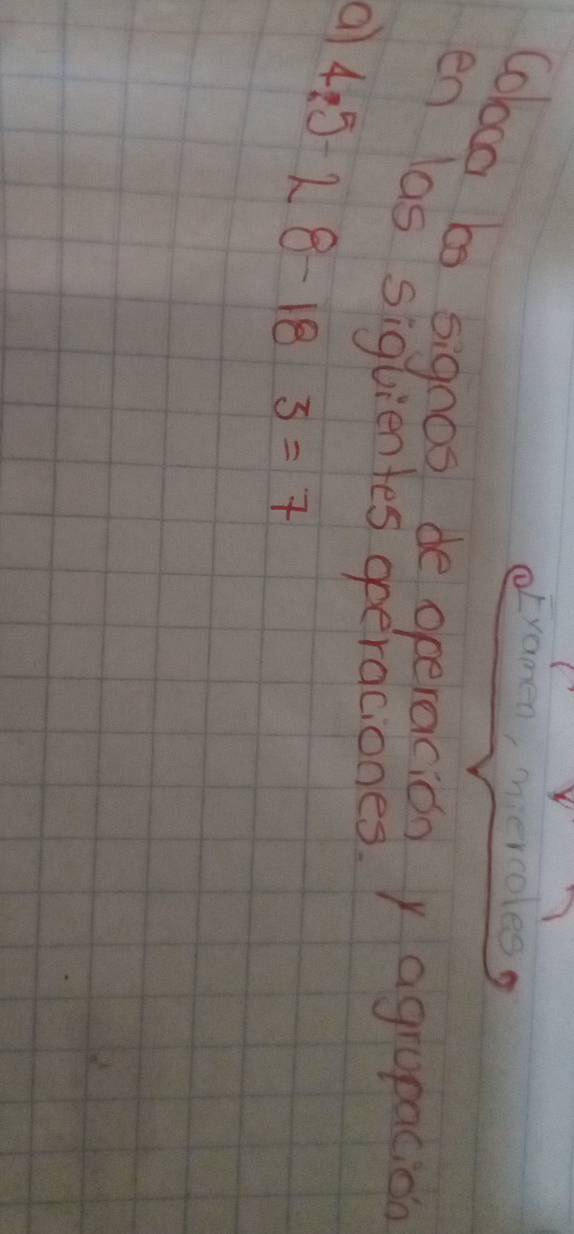 Examen, miercoles
Coloca los signos de operación y agrupación
en las siguientes operaciones.
a) 4 5 - 2 8 - 18 3 = 7